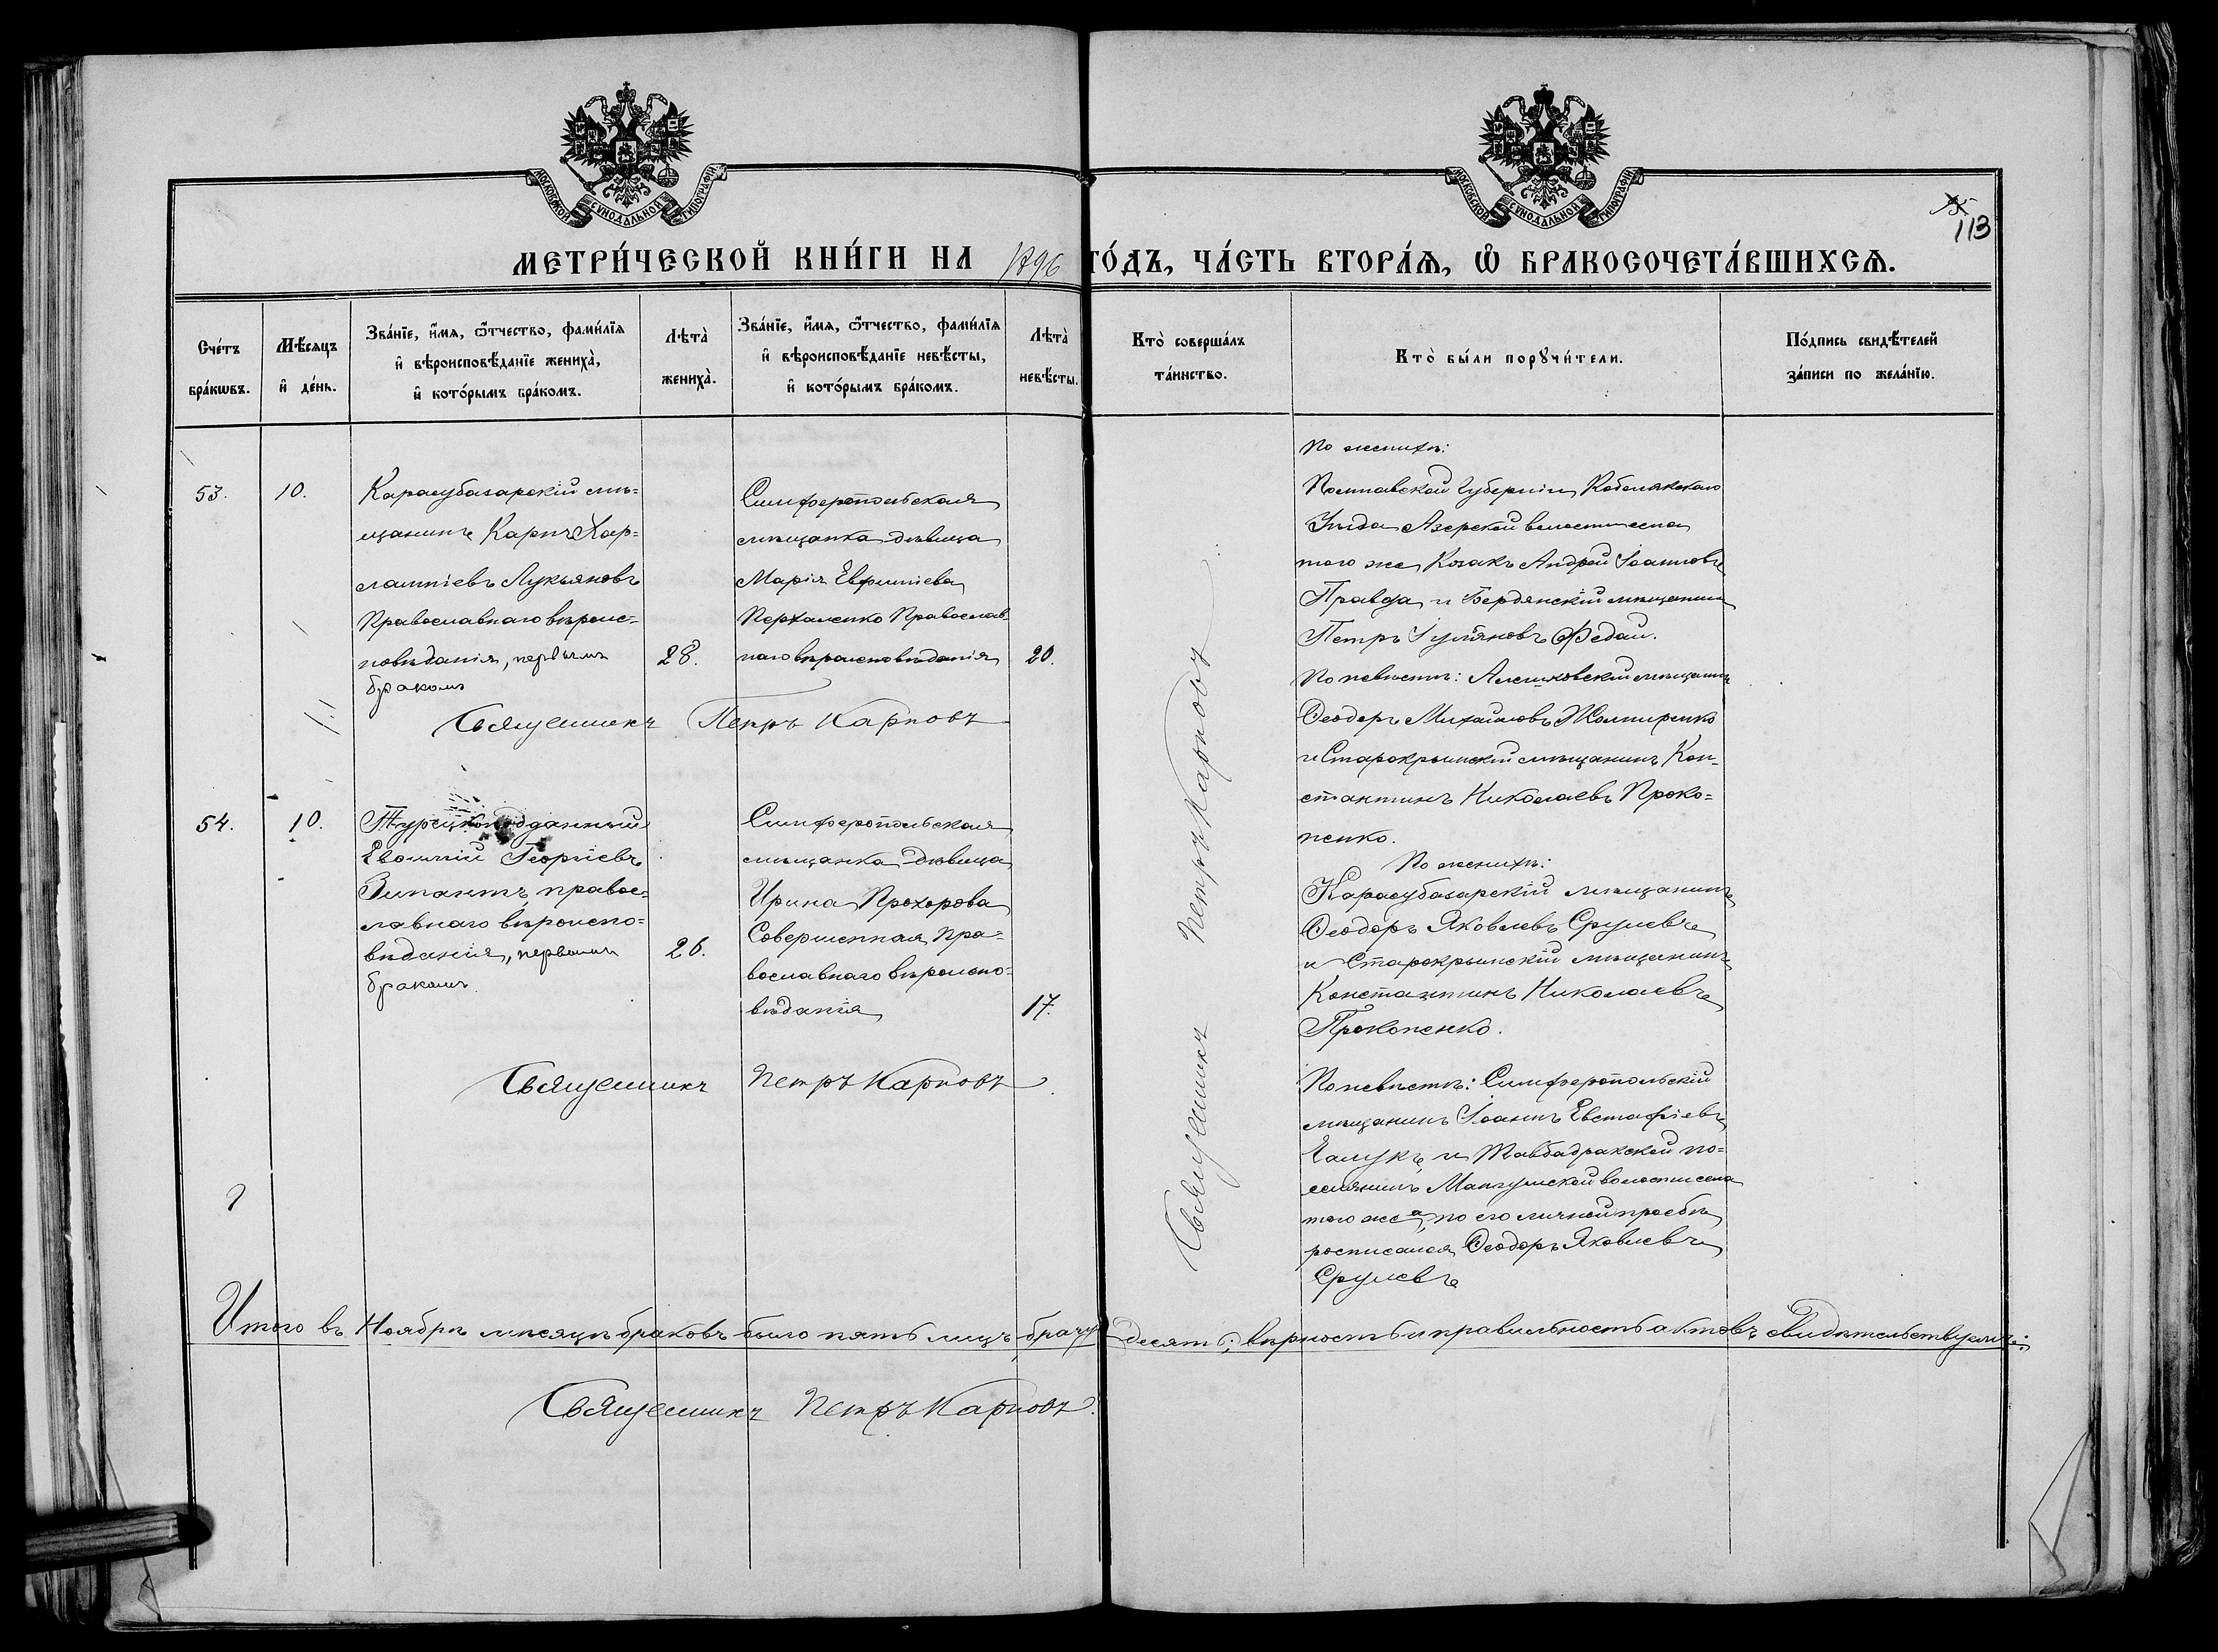 МОСКОВСКОЙ СУНОДАЛЬНОЙ ТИПОГРАФІИ
МОСКОВСКОЙ СУНОДАЛЬНОЙ ТИПОГРАФІИ
113
МЕТРИ́ЧЕСКОЙ КНИ́ГИ НА 1896 ГО́ДЪ, ЧА́СТЬ ВТОРА́Ѧ, Ѽ БРАКОСОЧЕТА́ВШИХСѦ.
Сче́тъ бра́кѡвъ.
Мѣ́сяцъ и҆ де́нь.
Зва́нїе, и҆́мѧ, ѻ҆́тчество, фами́лїѧ
и҆ вѣроисповѣ́данїе жениха̀,
и҆ кото́рымъ бра́комъ.
Лѣта̀ жениха̀.
Зва́нїе, и҆́мѧ, ѻ҆́тчество, фами́лїѧ
и҆ вѣроисповѣ́данїе невѣ́сты,
и҆ кото́рымъ бра́комъ.
Лѣта̀ невѣ́сты.
Кто̀ соверша́лъ
та́инство.
Кто̀ бы́ли порꙋчи́тели.
По́дпись свидѣ́телей
за́писи по жела́нїю.
53.
10.
Карасубазарскій мѣ=
щанинъ Карпъ Хар=
лампіевъ Лукьяновъ
Православнаго вѣроис=
повѣданія, первымъ
бракомъ
28.
Симферопольская
мѣщанка дѣвица
Марія Евфиміева
Пархоменко Православ=
наго вѣроисповѣданія
20.
Священникъ Петръ Карповъ
По женихѣ:
Полтавской Губерніи Кобелякскаго
Уѣзда Азерской волости села
того же Козакъ Андрей Іоанновъ
Правда и Бердянскій мѣщанинъ
Петръ Іуліановъ Федаи.
По невѣстѣ: Алешковскій мѣщанинъ
Ѳеодоръ Михайловъ Жолтиренко
и Старокрымскій мѣщанинъ Кон=
стантинъ Николаевъ Проко=
пенко.
54.
10.
Турецкоподданный
Георгіевъ
православ=
лавнаго вѣроиспо=
вѣданія, первымъ
бракомъ
26.
Симферопольская
мѣщанка дѣвица
Ирина Прохорова
Совершенная Пра=
вославнаго вѣроиспо=
вѣданія
17.
Священникъ Петръ Карповъ
По женихѣ:
Карасубазарскій мѣщанинъ
Ѳеодоръ Яковлевъ Срулевъ
и Старокрымскій мѣщанинъ
Константинъ Николаевъ
Прокопенко.
По невѣстѣ: Симферопольскій
мѣщанинъ Іоаннъ Евстафіевъ
и по=
селянинъ Мангушской волости села
того же а по его личной просьбѣ
росписался Ѳеодоръ Яковлевъ
Срулевъ
Священникъ Петръ Карповъ
Итого въ Ноябрѣ мѣсяцѣ браковъ было пять лицъ брачу десять; вѣрность и правильность актовъ свидѣтельствуемъ:
Священникъ Петръ Карповъ.